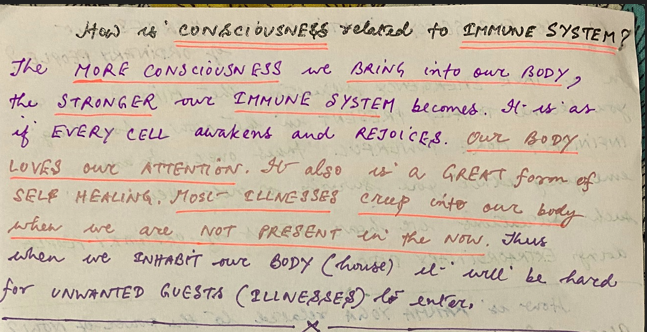 How is CONSCIOUSNESS related to IMMUNE SYSTEM?
The MORE CONSCIOUSNESS we BRING into our BODY,
the STRONGER our IMMUNE SYSTEM becomes. It is as
if EVERY CELL awakens and REJOICES. Our BODY
LOVES our ATTENTION. It also is a GREAT form of
SELF HEALING. Most ILLNESSES creep into our body
when we are NOT PRESENT in the NOW. Thus
when we INHABIT our BODY (house) it will be hard
for UNWANTED GUESTS (ILLNESSES) to enter.